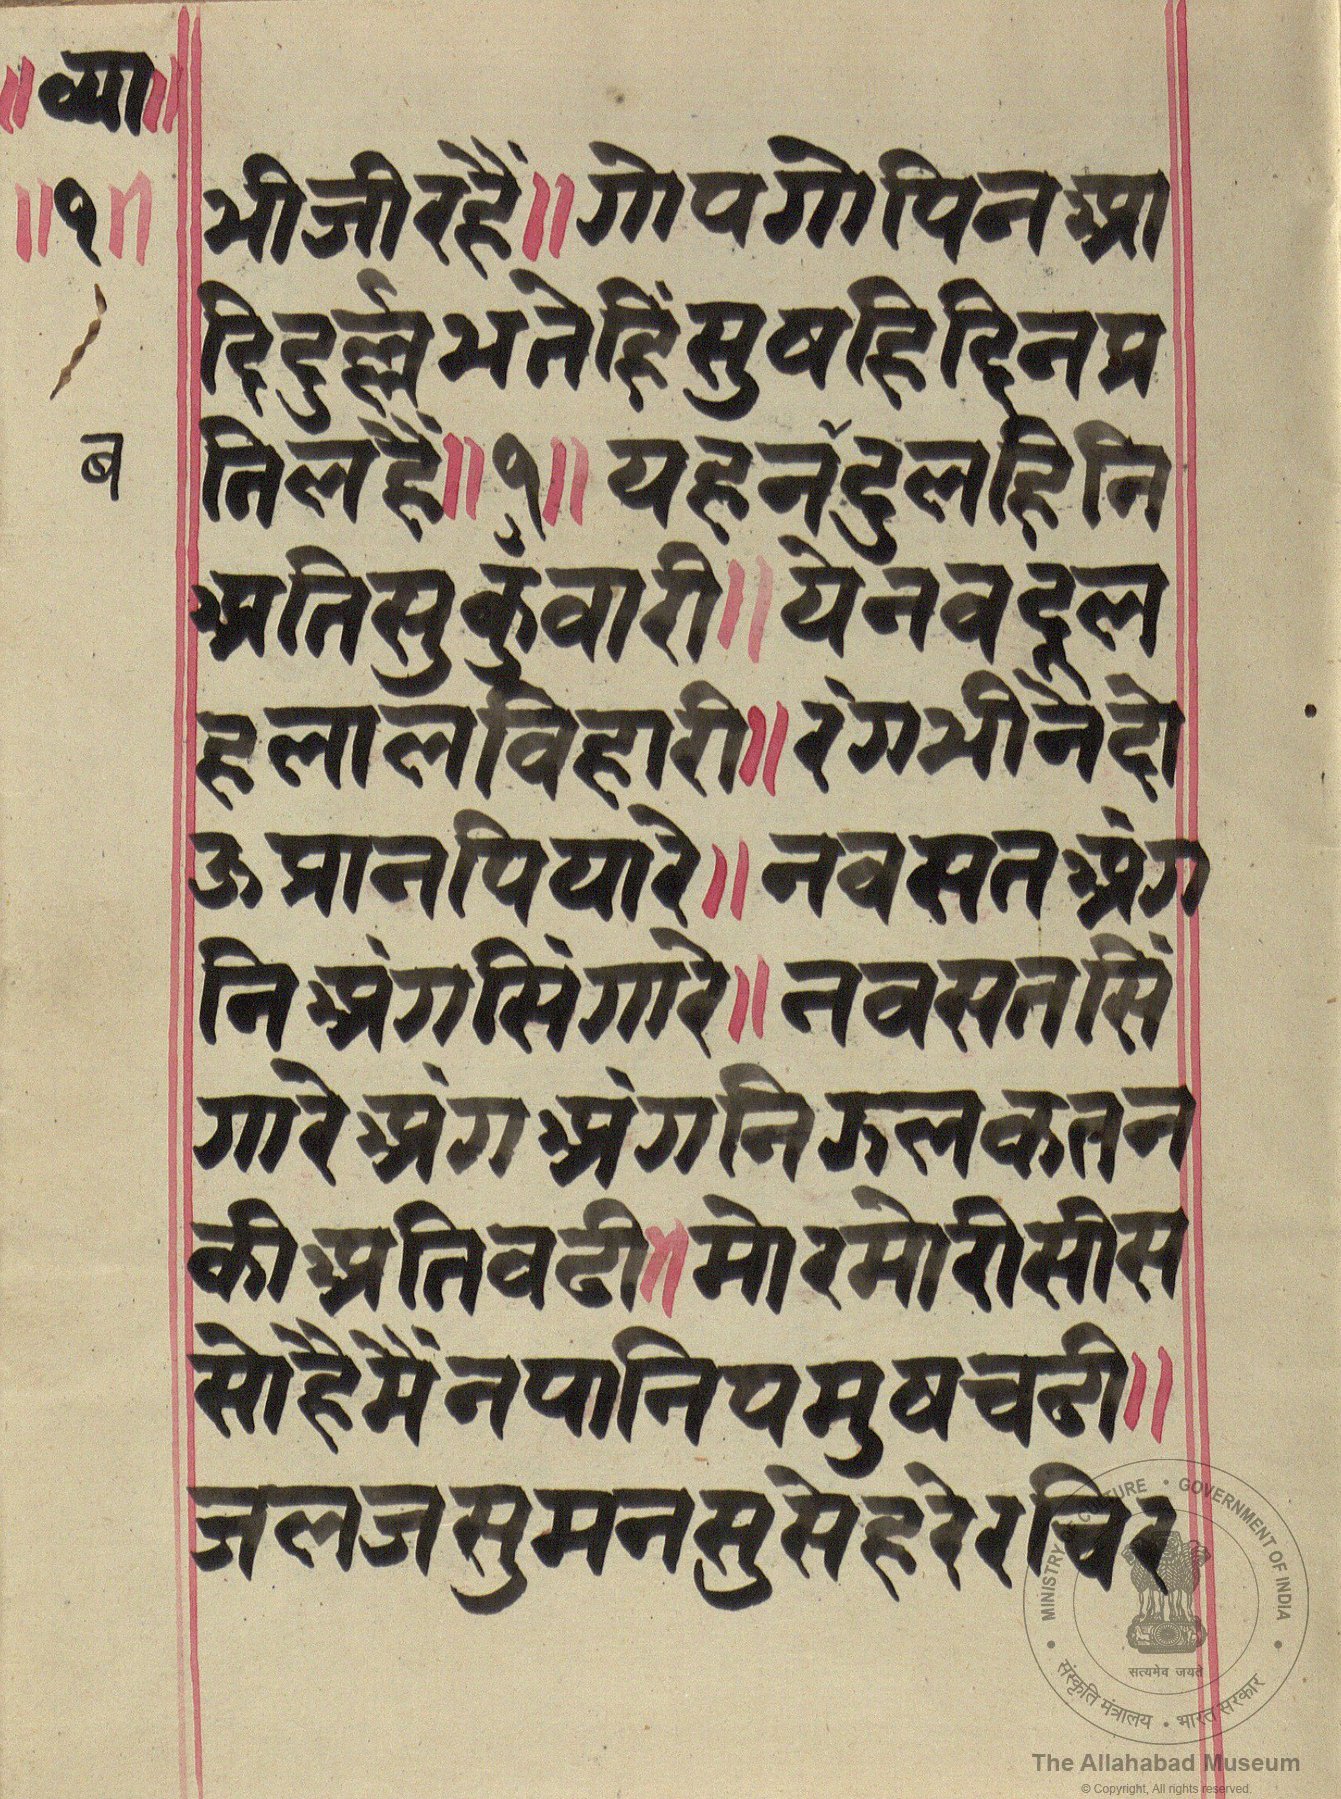 ॥व्या॥
॥१॥
भीजी रहैं॥ गोप गोपिन आ
दि दुर्ल्लभ तेहिं सुषहि दिन प्र
ति लहैं॥१॥ यह नँदुलहिनि
अति सुकुँवारी॥ ये नव दूल
ह लाल विहारी॥ रंग भीनै दो
ऊ प्रान पियारे॥ नव सत अंग
नि अंग सिंगारे॥ नव सत सिं
गारे अंग अंगनि झलक तन
की अति वढी॥ मोर मोरी सीस
सोहै मैंन पानिप मुष चढी॥
जलज सुमन सुसेहरे रचि र
ब
MINISTRY OF CULTURE • GOVERNMENT OF INDIA
सत्यमेव जयते
संस्कृति मंत्रालय • भारत सरकार
The Allahabad Museum
© Copyright, All rights reserved.